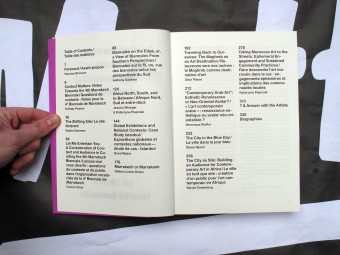 Table of Contents /
Table des matières
7
Foreword /Avant-propos
Vanessa Branson
9
Context Matters: Notes
Towards the 4th Marrakech
Biennale/ Questions de
contexte : Notes pour la
4e Biennale de Marrakech
30
The Shifting Site/ Le site
mouvant
Nadim Samman
46
Let Me Entertain You:
A Consideration of Con-
text and Audience in Cu-
rating the 4th Marrakech
Biennale /Laissez-moi
vous divertir : questions
de contexte et de public
dans l'organisation curato-
riale de la 4e Biennale de
Marrakech
88
Biennales on the Edge, or,
a View of Biennales From
Southern Perspectives /
Biennales sur le fil, ou, vue
des biennales selon les
perspectives du Sud
Anthony Gardner
104
Africa North, South, and
In-Between / Afrique Nord,
Sud et entre-deux
& Katarzyna Pieprzak
144
Global Exhibitions and
National Contexts: Case
Study Istanbul /
Expositions globales et
contextes nationaux —
étude de cas : Istanbul
176
Marrakech or Marrakech
192
Traveling Back to Our-
selves: The Maghreb as
an Art Destination /Re-
tournons vers nos racines :
le Maghreb comme desti-
nation d'art
212
"Contemporary Arab Art",
Esthetic Renaissance
or Neo-Oriental Avatar? /
« L'art contemporain
arabe » : renaissance es-
thétique ou avatar néo-ori-
entaliste ?
222
The City in the Blue Day /
La ville dans le jour bleu
256
The City as Site: Building
An Audience for Contem-
porary Art in Africa / La ville
en tant que site : création
d'un public pour l'art con-
temporain en Afrique
276
Taking Moroccan Art to the
Streets: Ephemeral Engage-
ment and Sustained
Community Practices /
Faire descendre l'art ma-
rocain dans la rue : en-
gagements éphémères et
implications des commu-
nautés locales
Katarzyna Pieprzak
313
7 & Answer with the Artists
330
Biographies